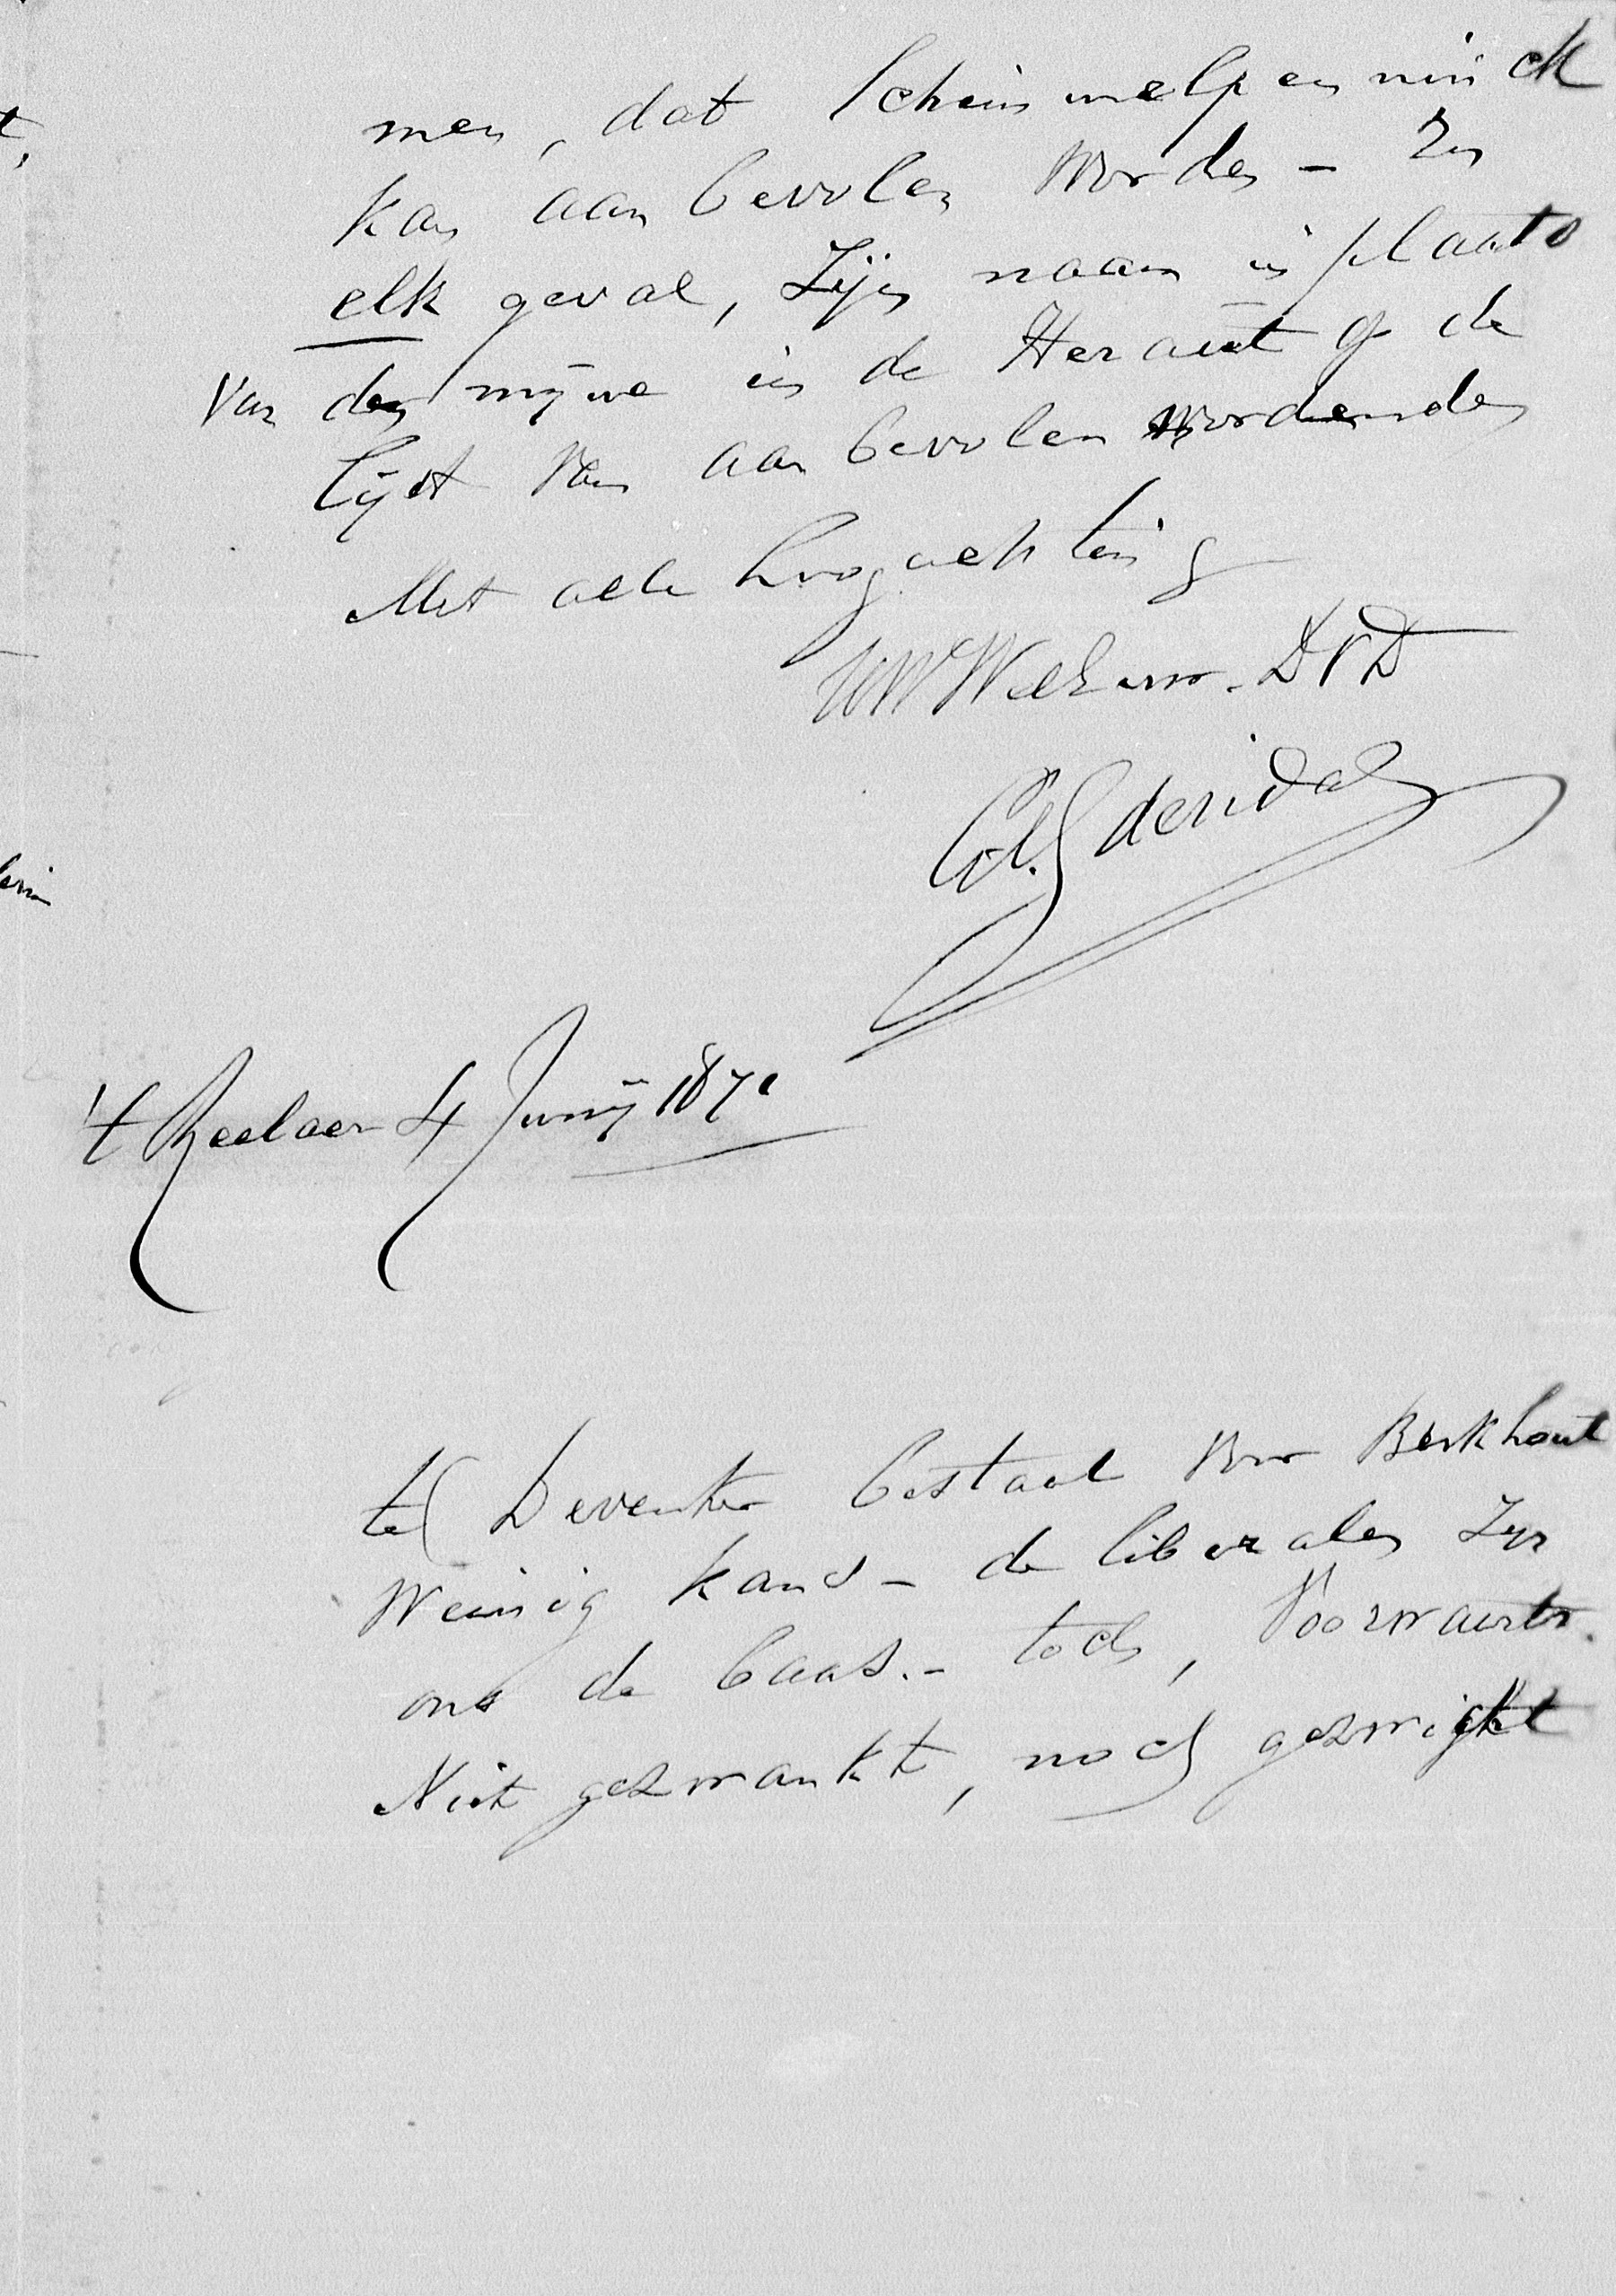 men, dat Schimmelpenninck
kan aanbevolen worden - In
elk geval, Zijn naam in plaats
van den mijne in de Heraut op de
lijst van aanbevolen wordenden
Met alle hoogachting
UWWelEerw. DVD
't Reelaer 4 Junij 1871
te Deventer bestaat voor Berkhout
Weinig kans - de liberalen Zijn
ons de baas. - toch, Voorwaarts.
Niet gewankt, noch gezwicht